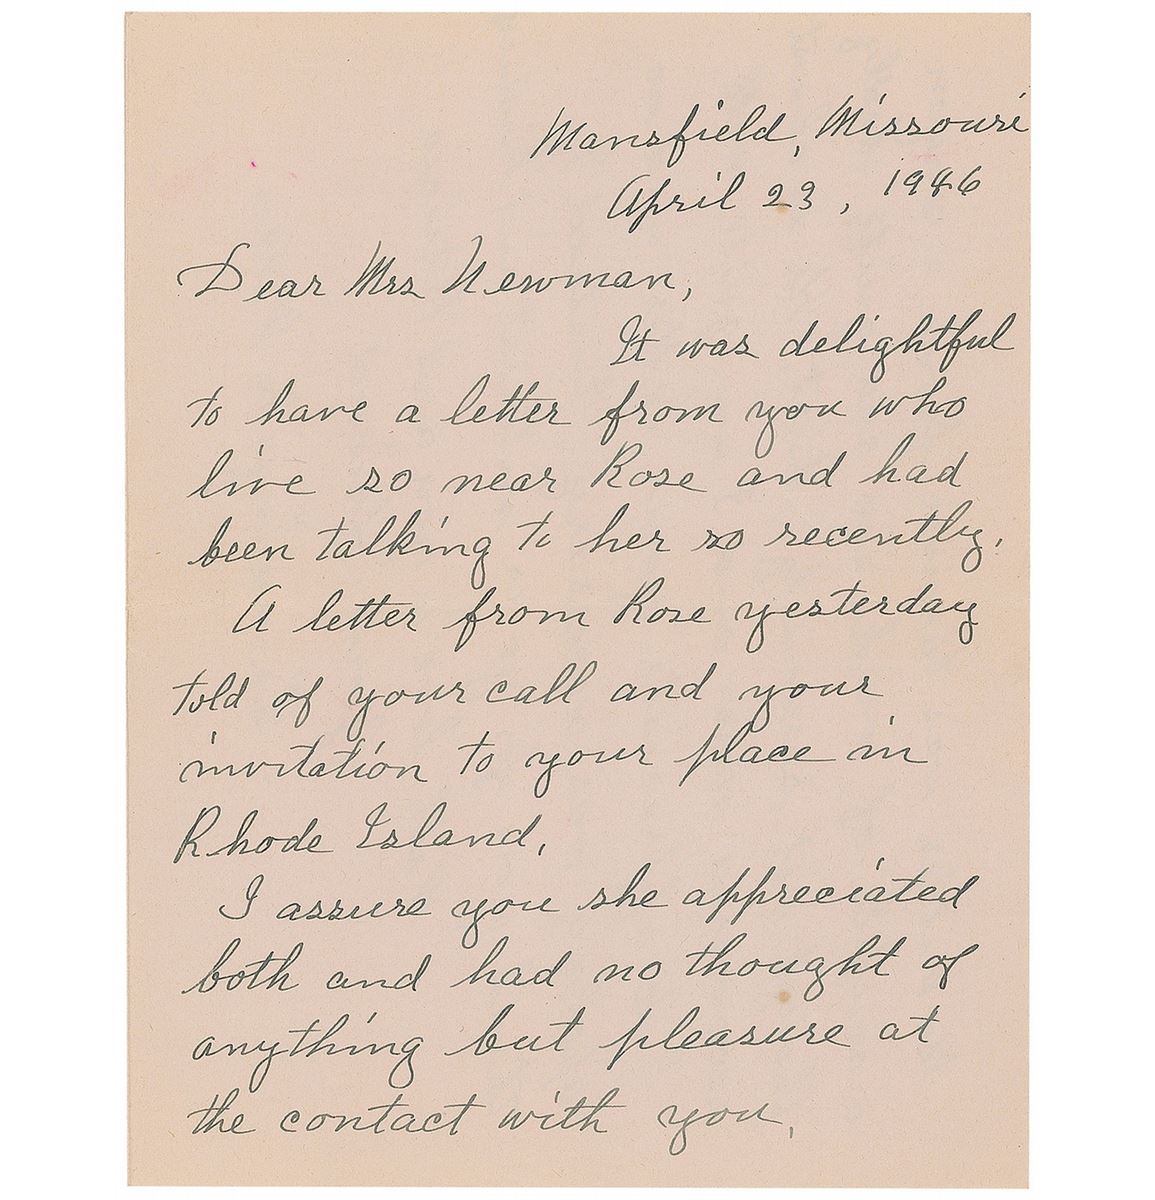 Mansfield, Missouri
April 23, 1946
Dear Mrs Newman,
It was delightful
to have a letter from you who
live so near Rose and had
been talking to her so recently.
A letter from Rose yesterday
told of your call and your
invitation to your place in
Rhode Island.
I assure you she appreciated
both and had no thought of
anything but pleasure at
the contact with you.